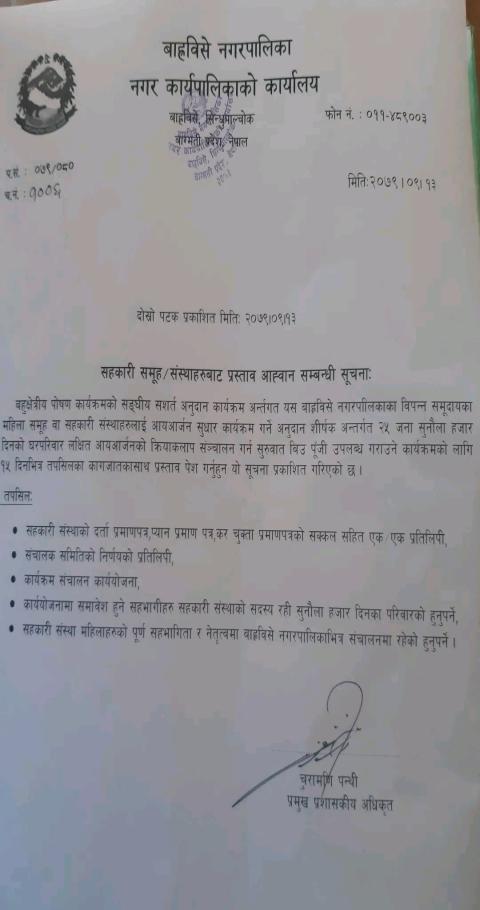 बाह्रविसे नगरपालिका
नगर कार्यपालिकाको कार्यालय
बाह्रविसे, सिन्धुपाल्चोक
बाग्मती प्रदेश, नेपाल
फोन नं. : ०११-४८९००३
प.सं. : ०७९/०८०
च.नं. : १००६
मिति:२०७९।०९।१३
दोस्रो पटक प्रकाशित मिति: २०७९।०९।१३
सहकारी समूह/संस्थाहरुबाट प्रस्ताव आह्वान सम्बन्धी सूचना:
बहुक्षेत्रीय पोषण कार्यक्रमको सङ्घीय सशर्त अनुदान कार्यक्रम अर्न्तगत यस बाह्रविसे नगरपालिकाका विपन्न समूदायका
महिला समूह वा सहकारी संस्थाहरुलाई आयआर्जन सुधार कार्यक्रम गर्ने अनुदान शीर्षक अन्तर्गत २५ जना सुनौला हजार
दिनको घरपरिवार लक्षित आयआर्जनको क्रियाकलाप सञ्चालन गर्न सुरुवात बिउ पूंजी उपलब्ध गराउने कार्यक्रमको लागि
१५ दिनभित्र तपसिलका कागजातकासाथ प्रस्ताव पेश गर्नुहुन यो सूचना प्रकाशित गरिएको छ ।
तपसिल:
• सहकारी संस्थाको दर्ता प्रमाणपत्र,प्यान प्रमाण पत्र,कर चुक्ता प्रमाणपत्रको सक्कल सहित एक/एक प्रतिलिपी,
• संचालक समितिको निर्णयको प्रतिलिपी,
• कार्यक्रम संचालन कार्ययोजना,
• कार्ययोजनामा समावेश हुने सहभागीहरु सहकारी संस्थाको सदस्य रही सुनौला हजार दिनका परिवारको हुनुपर्ने,
• सहकारी संस्था महिलाहरुको पूर्ण सहभागिता र नेतृत्वमा बाह्रविसे नगरपालिकाभित्र संचालनमा रहेको हुनुपर्ने ।
चुरामणि पन्थी
प्रमुख प्रशासकीय अधिकृत